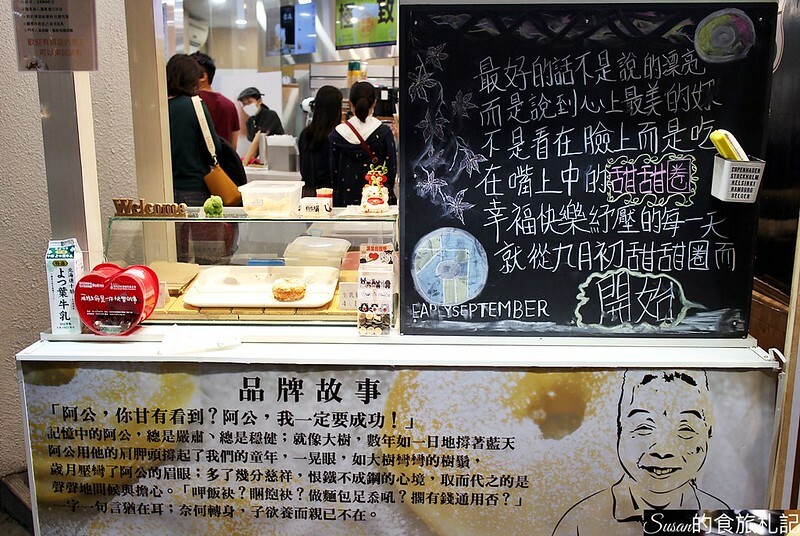 最好的話不是說的漂亮
而是說到心上最美的妳
不是看在臉上而是吃
在嘴上中的甜甜圈
幸福快樂紓壓的每一天
就從九月初甜甜圈而
開始
EARLYSEPTEMBER
COPENHAGEN
STOCKHOLM
HELSINKI
Welcome
よつ葉牛乳
品牌故事
「阿公，你甘有看到？阿公，我一定要成功！」
記憶中的阿公，總是嚴肅、總是穩健；就像大樹，數年如一日地撐著藍天
阿公用他的肩胛頭撐起了我們的童年，一晃眼，如大樹彎彎的樹鬚，
歲月壓彎了阿公的眉眼；多了幾分慈祥，恨鐵不成鋼的心境，取而代之的是
聲聲地問候與擔心。「呷飯袂？睏飽袂？做麵包足忝吼？擱有錢通用否？」
一字一句言猶在耳；奈何轉身，子欲養而親已不在。
Susan的食旅札記